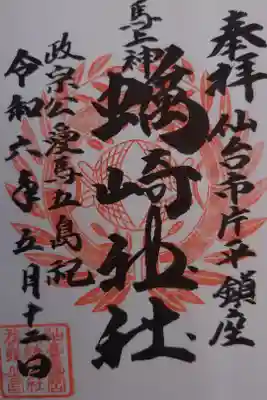 奉拝 仙台市片平鎮座
馬上神
蛎崎神社
政宗公愛馬五島祀
令和六年五月十二日